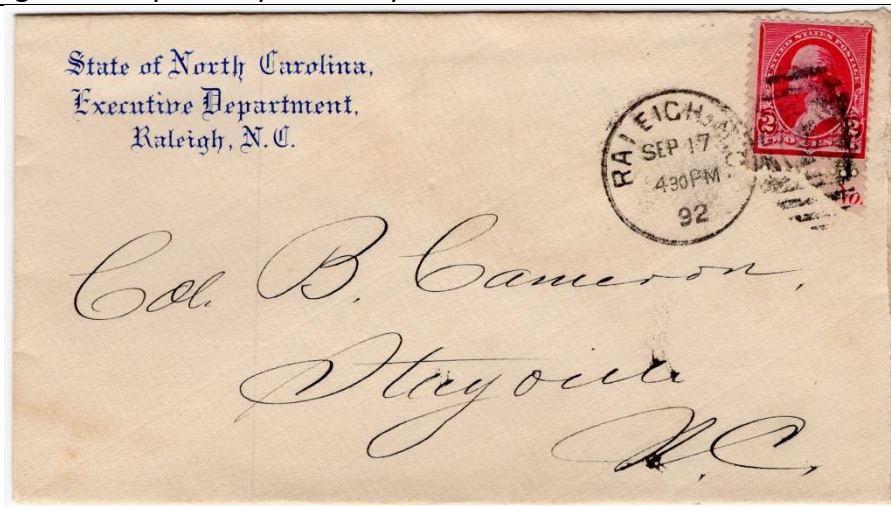 State of North Carolina,
Executive Department,
Raleigh, N.C.
RALEIGH
SEP 17
4 30 PM
92
UNITED STATES POSTAGE
2
Col. B. Cameron,
Stagville
N.C.